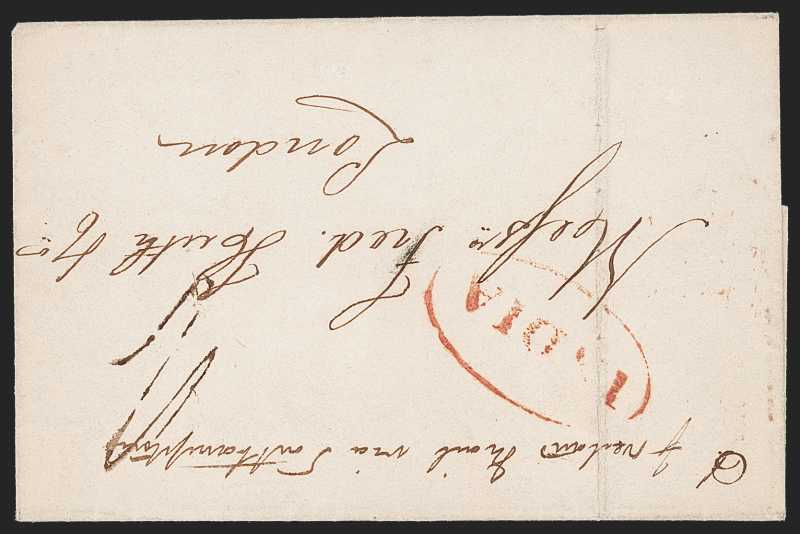 overland Mail via Southampton
INDIA
Messrs Fred. Huth & Co
London